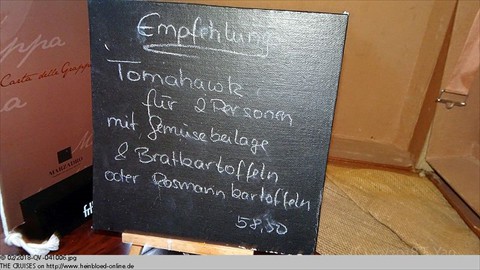 Empfehlung
Tomahawk
für 2 Personen
mit Gemüsebeilage
& Bratkartoffeln
oder Rosmarinkartoffeln
58,50
Carta delle Grappe
MARZADRO
© 02/2018-QV-041006.jpg
THE CRUISES on http://www.heinbloed-online.de